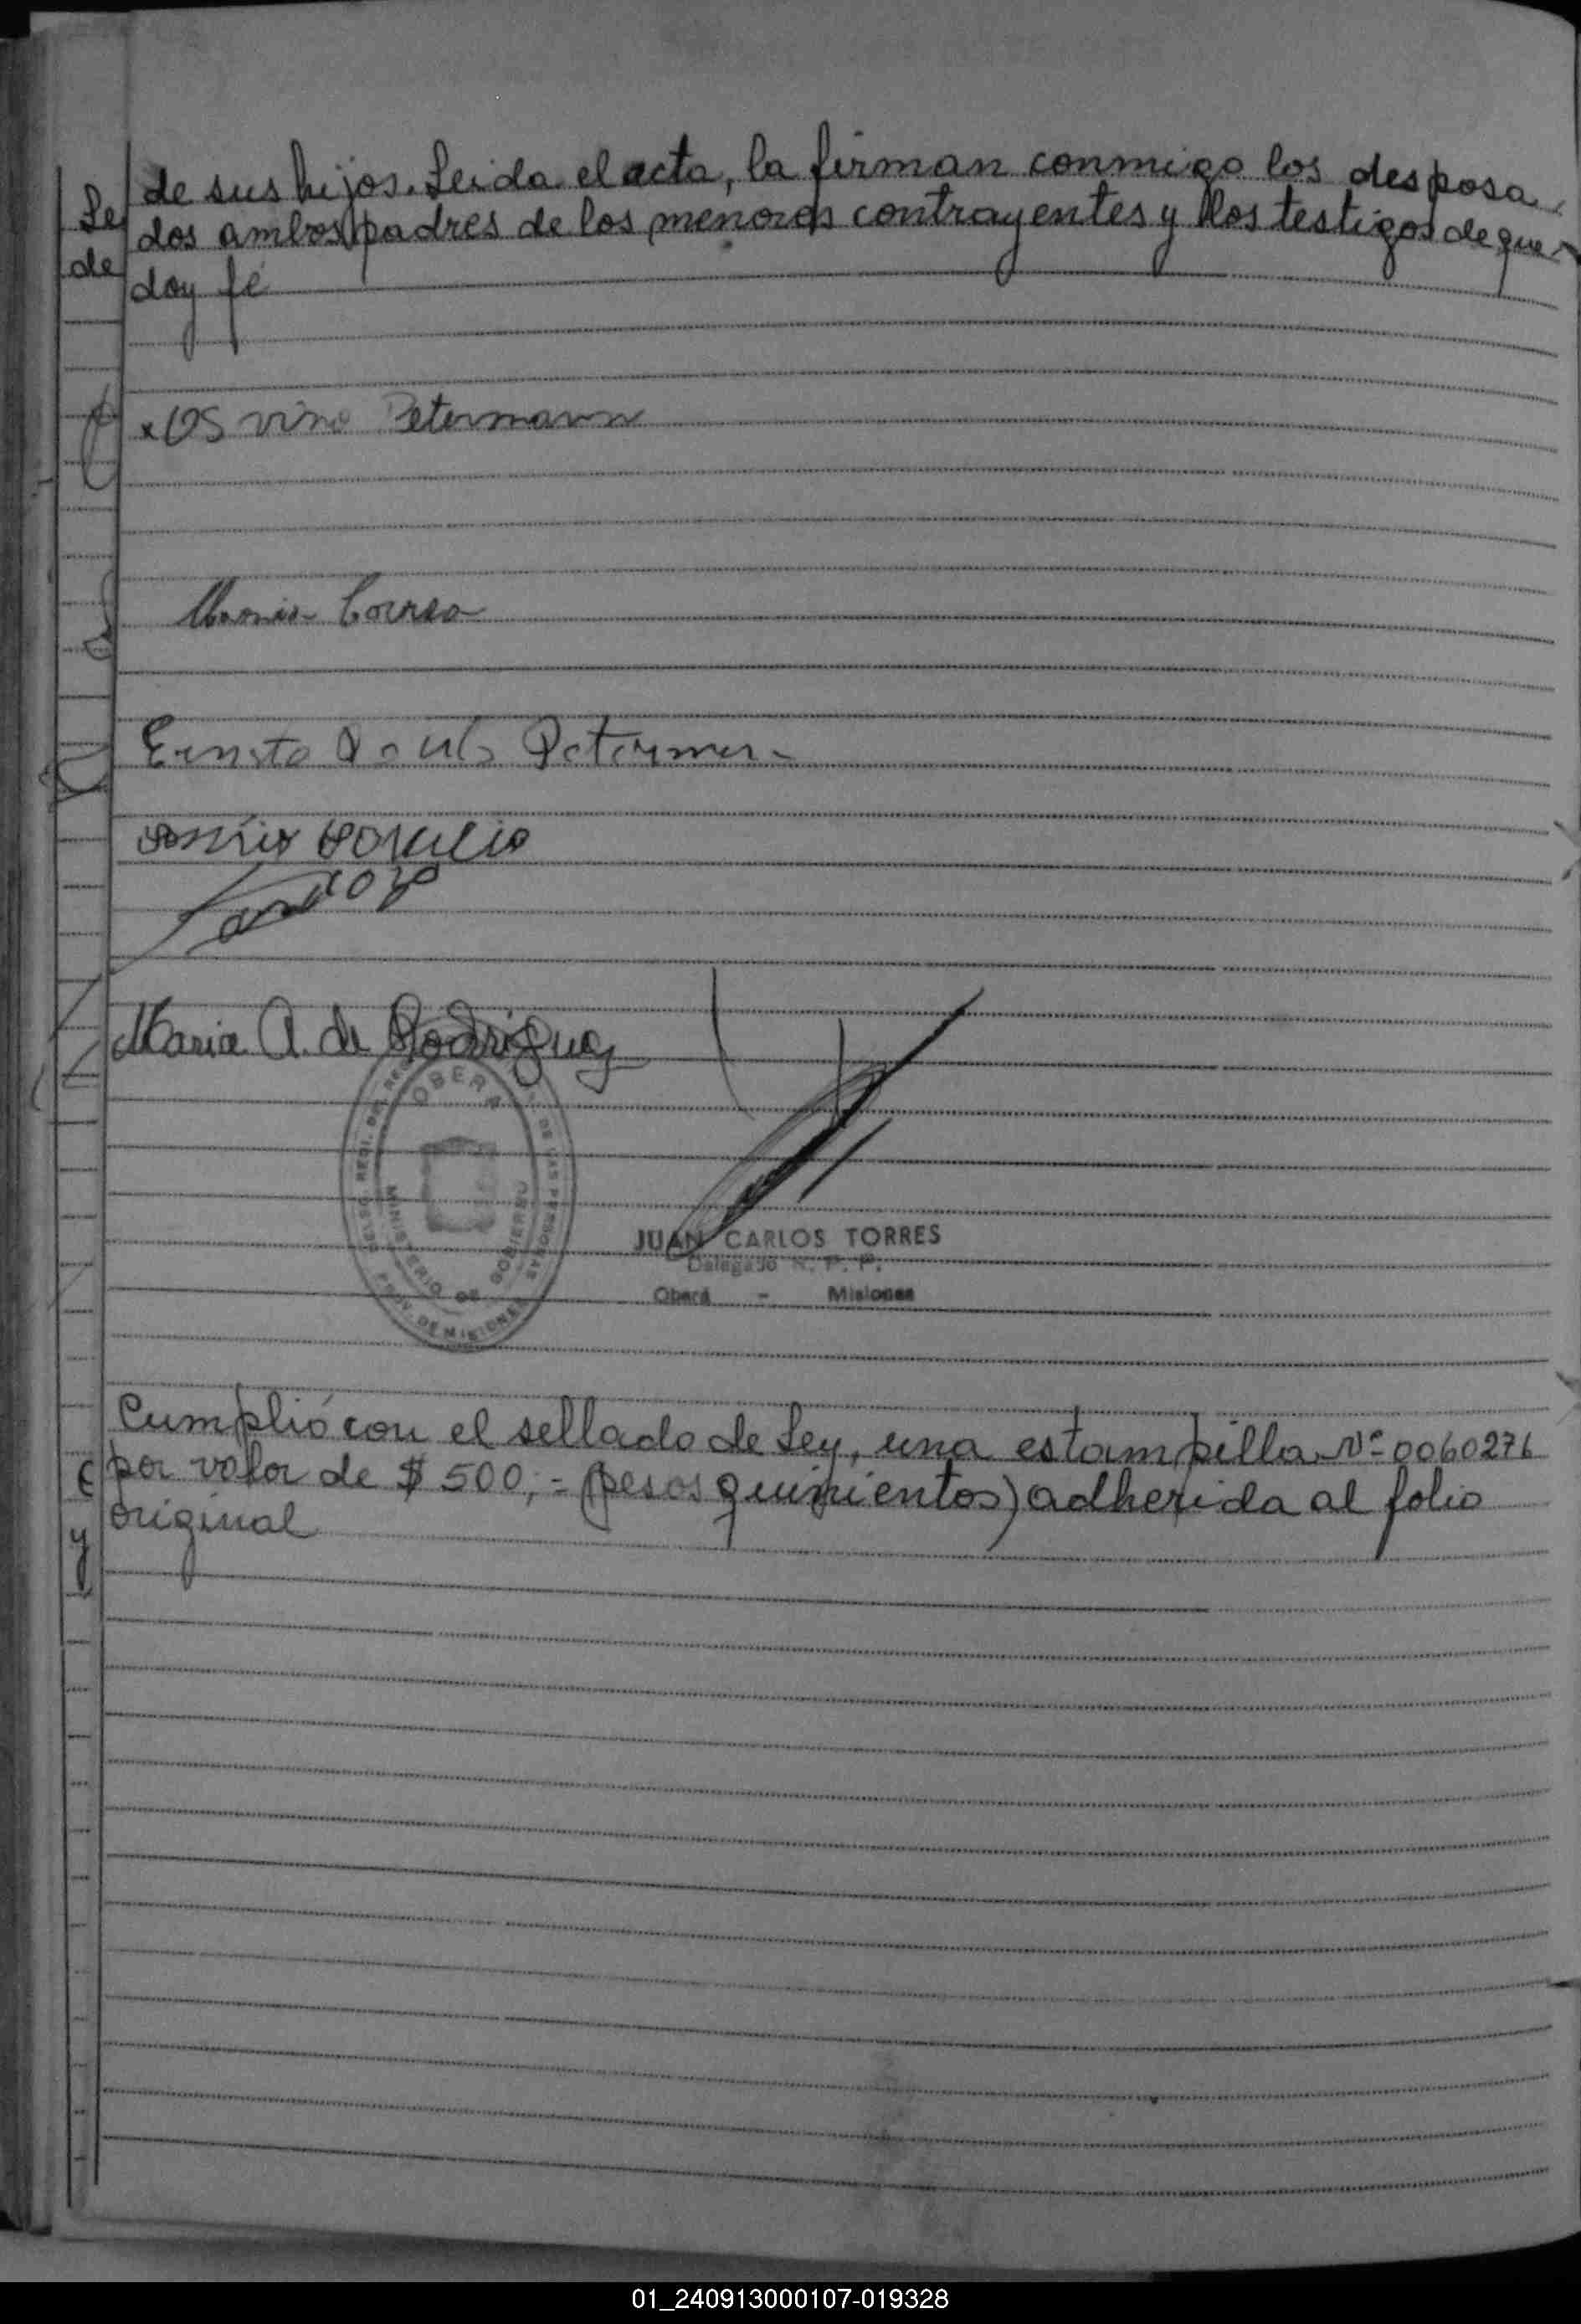 de sus hijos. Leida el acta, la firman conmigo los desposa
dos ambos padres de los menores contrayentes y los testigos de que
doy fé
x OSvino Petermann
Maria Correa
Ernesto Petermann
Maria A. de Rodriguez
OBERA
MINISTERIO DE GOBIERNO
PROV. DE MISIONES
JUAN CARLOS TORRES
Delegado R. P. P.
Oberá - Misiones
Cumplió con el sellado de Ley, una estampilla Nº 0060276
por valor de $ 500,= (pesos quinientos) adherida al folio
original
Le
de
y
01_240913000107-019328